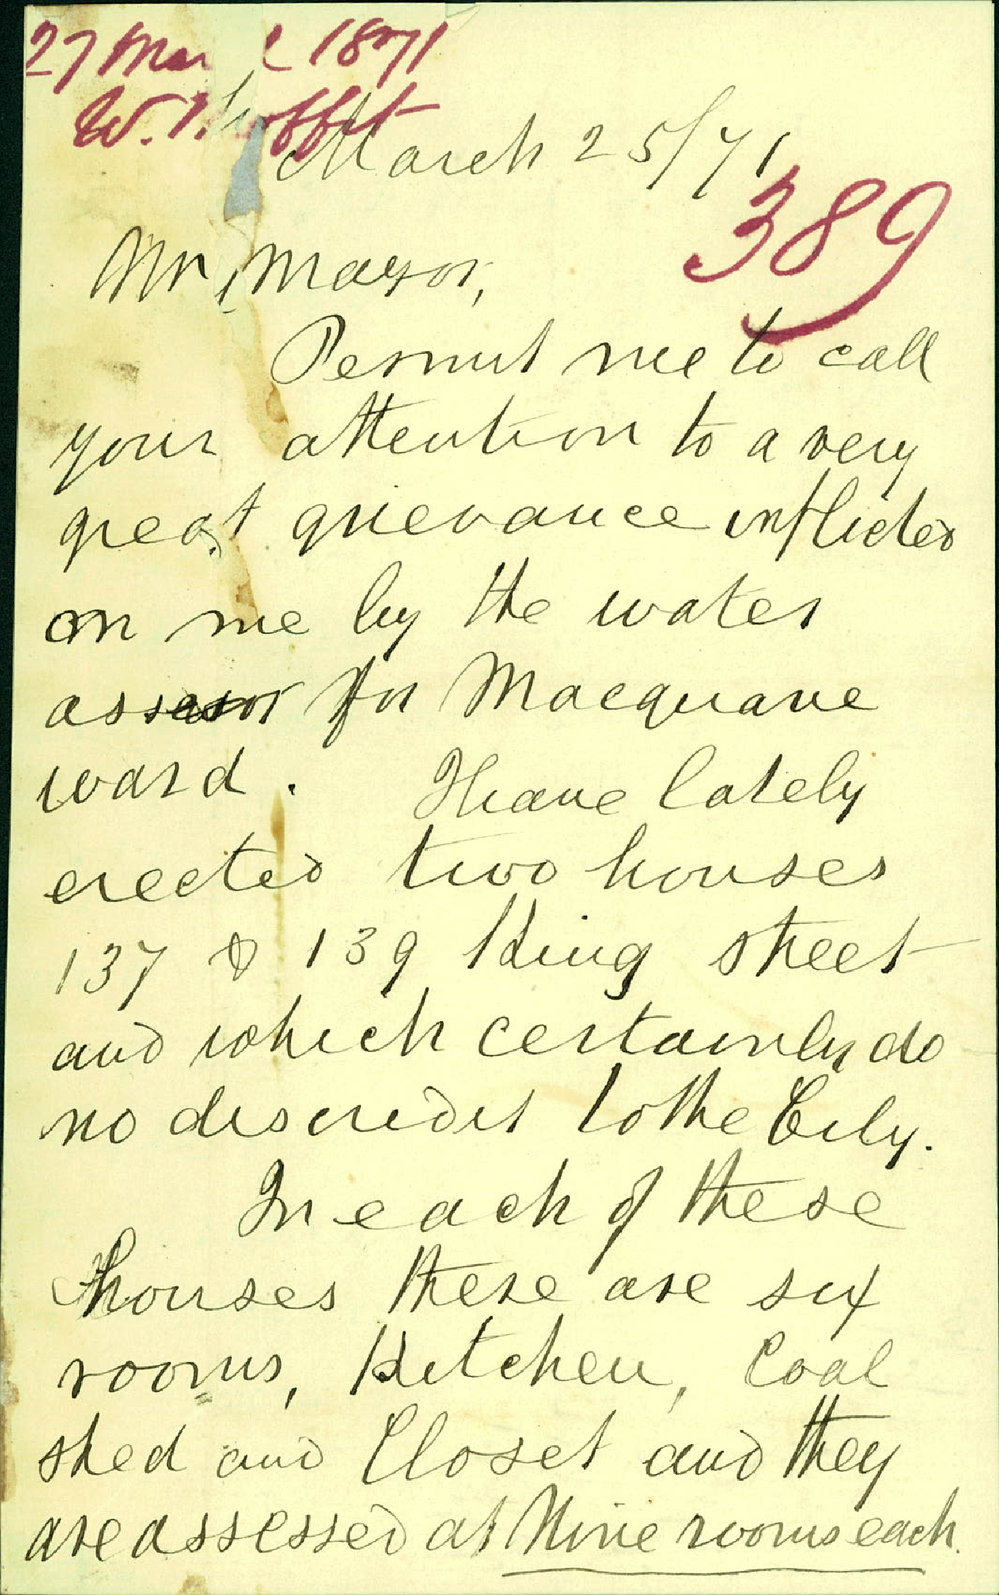 27 Mar 1871
W. Moffit
March 25/71
389
Mr Mayor,
Permit me to call
your attention to a very
great grievance inflicted
on me by the water
assesor for Macquarie
ward. I have lately
erected two houses
137 & 139 King street
and which certainly do
no discredit to the City.
In each of these
houses there are six
rooms, Kitchen, Coal
shed and Closet and they
are assessed at Nine rooms each.